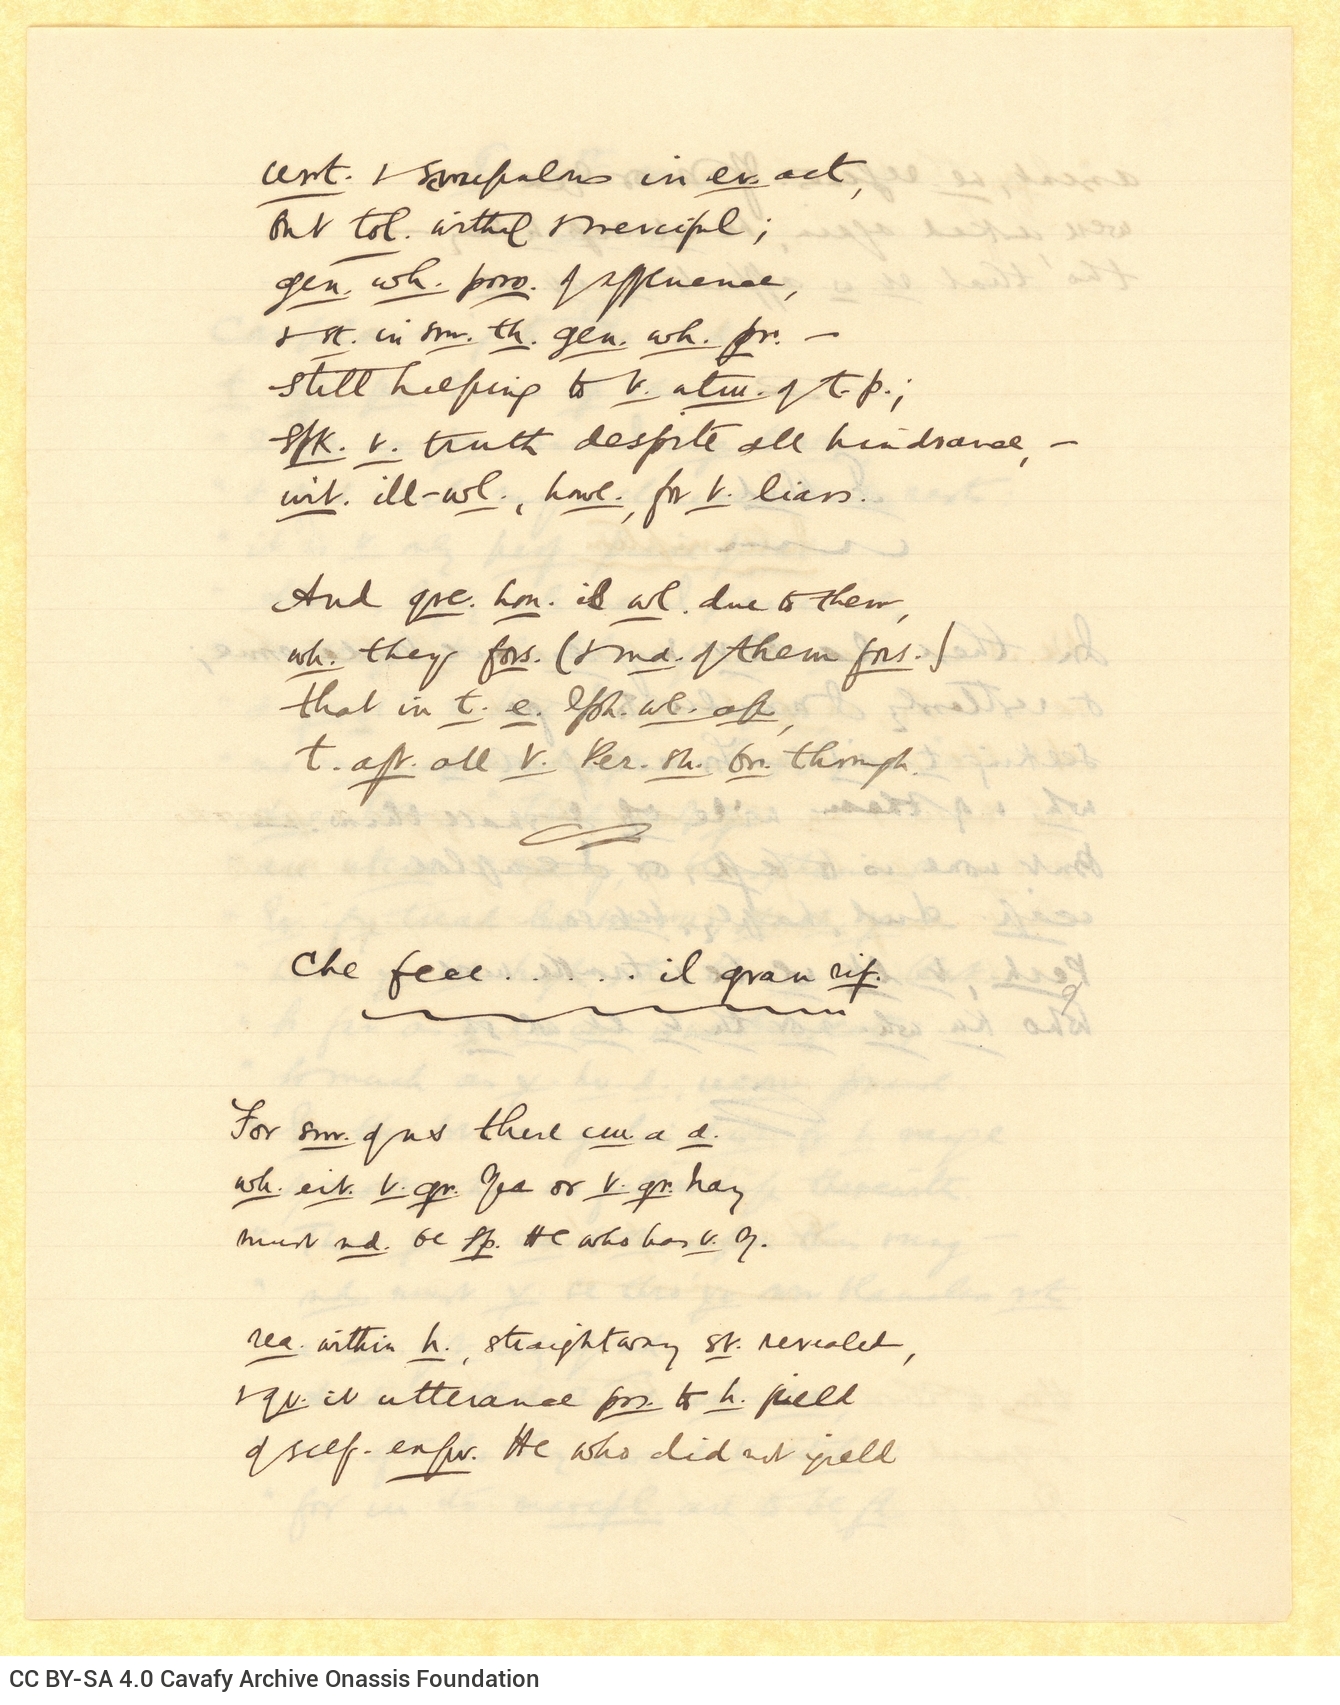 cert. & scrupulous in ev. act,
but tol. withal & merciful;
gen. wh. poss. of affluence,
& st. in sm. th. gen. wh. pr. —
still helping to t. utm. of t. p.;
spk. t. truth despite all hindrance, —
wit. ill-wl., howl., for t. liars.
And gre. hon. is wl. due to them,
wh. they fors. (& md. of them fors.)
that in t. e. Eph. wl. ap.,
t. aft. all t. Per. sh. br. through.
Che fece . . . . . il gran rif.
For sm. of us there cm. a d.
wh. eit. t. gr. Yea or t. gr. Nay
must nd. be sp. He who has t. Y.
rea. within h., straightway st. revealed,
& gv. it utterance prs. to h. field
of self-enfr. He who did not yield
CC BY-SA 4.0 Cavafy Archive Onassis Foundation